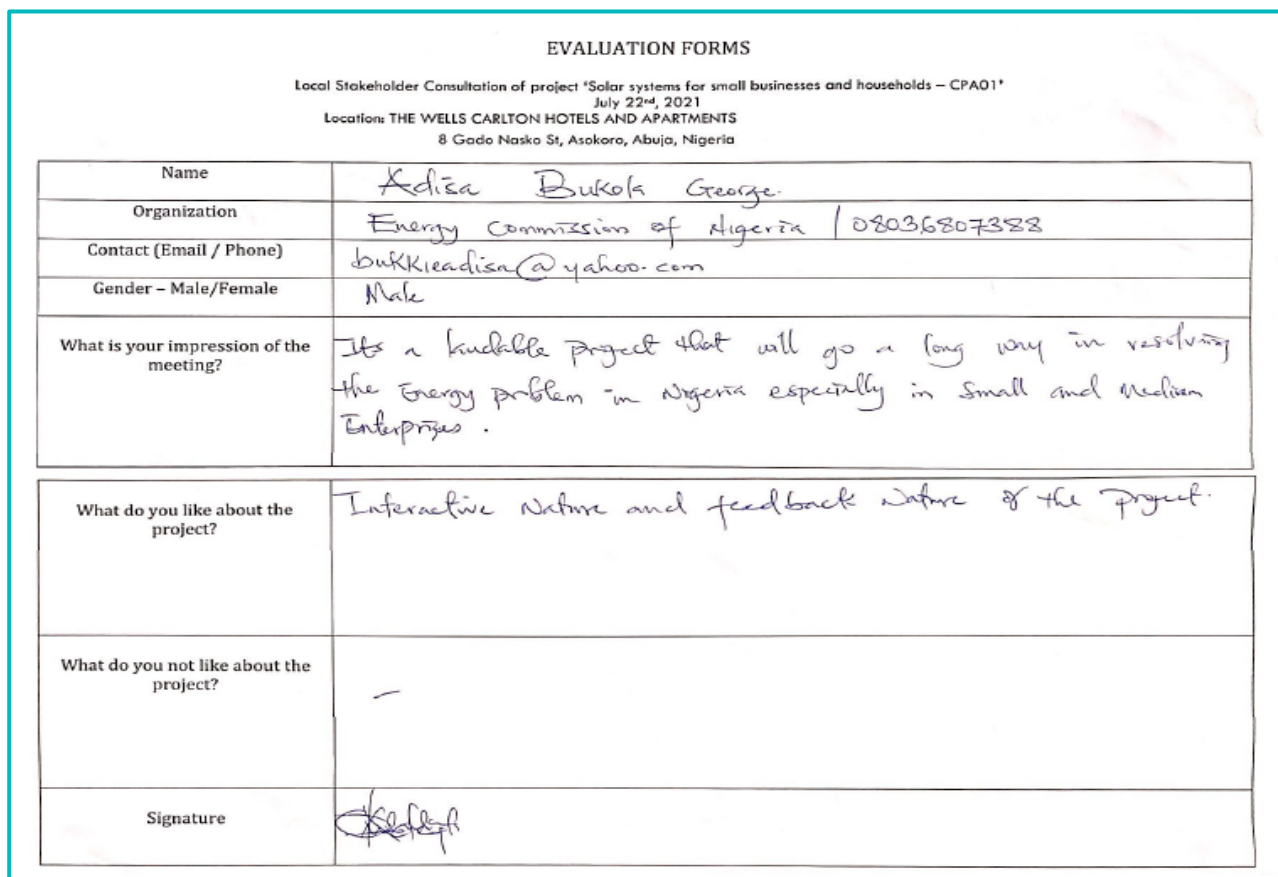 EVALUATION FORMS
Local Stakeholder Consultation of project "Solar systems for small businesses and households – CPA01"
July 22nd, 2021
Location: THE WELLS CARLTON HOTELS AND APARTMENTS
8 Gado Nasko St, Asokoro, Abuja, Nigeria
Name
Adisa Bukola George.
Organization
Energy Commission of Nigeria / 08036807388
Contact (Email / Phone)
bukkieadisa@yahoo.com
Gender – Male/Female
Male
What is your impression of the
meeting?
Its a laudable project that will go a long way in resolving
the Energy problem in Nigeria especially in Small and Medium
Enterprizes.
What do you like about the
project?
Interactive Nature and feedback Nature of the project.
What do you not like about the
project?
–
Signature